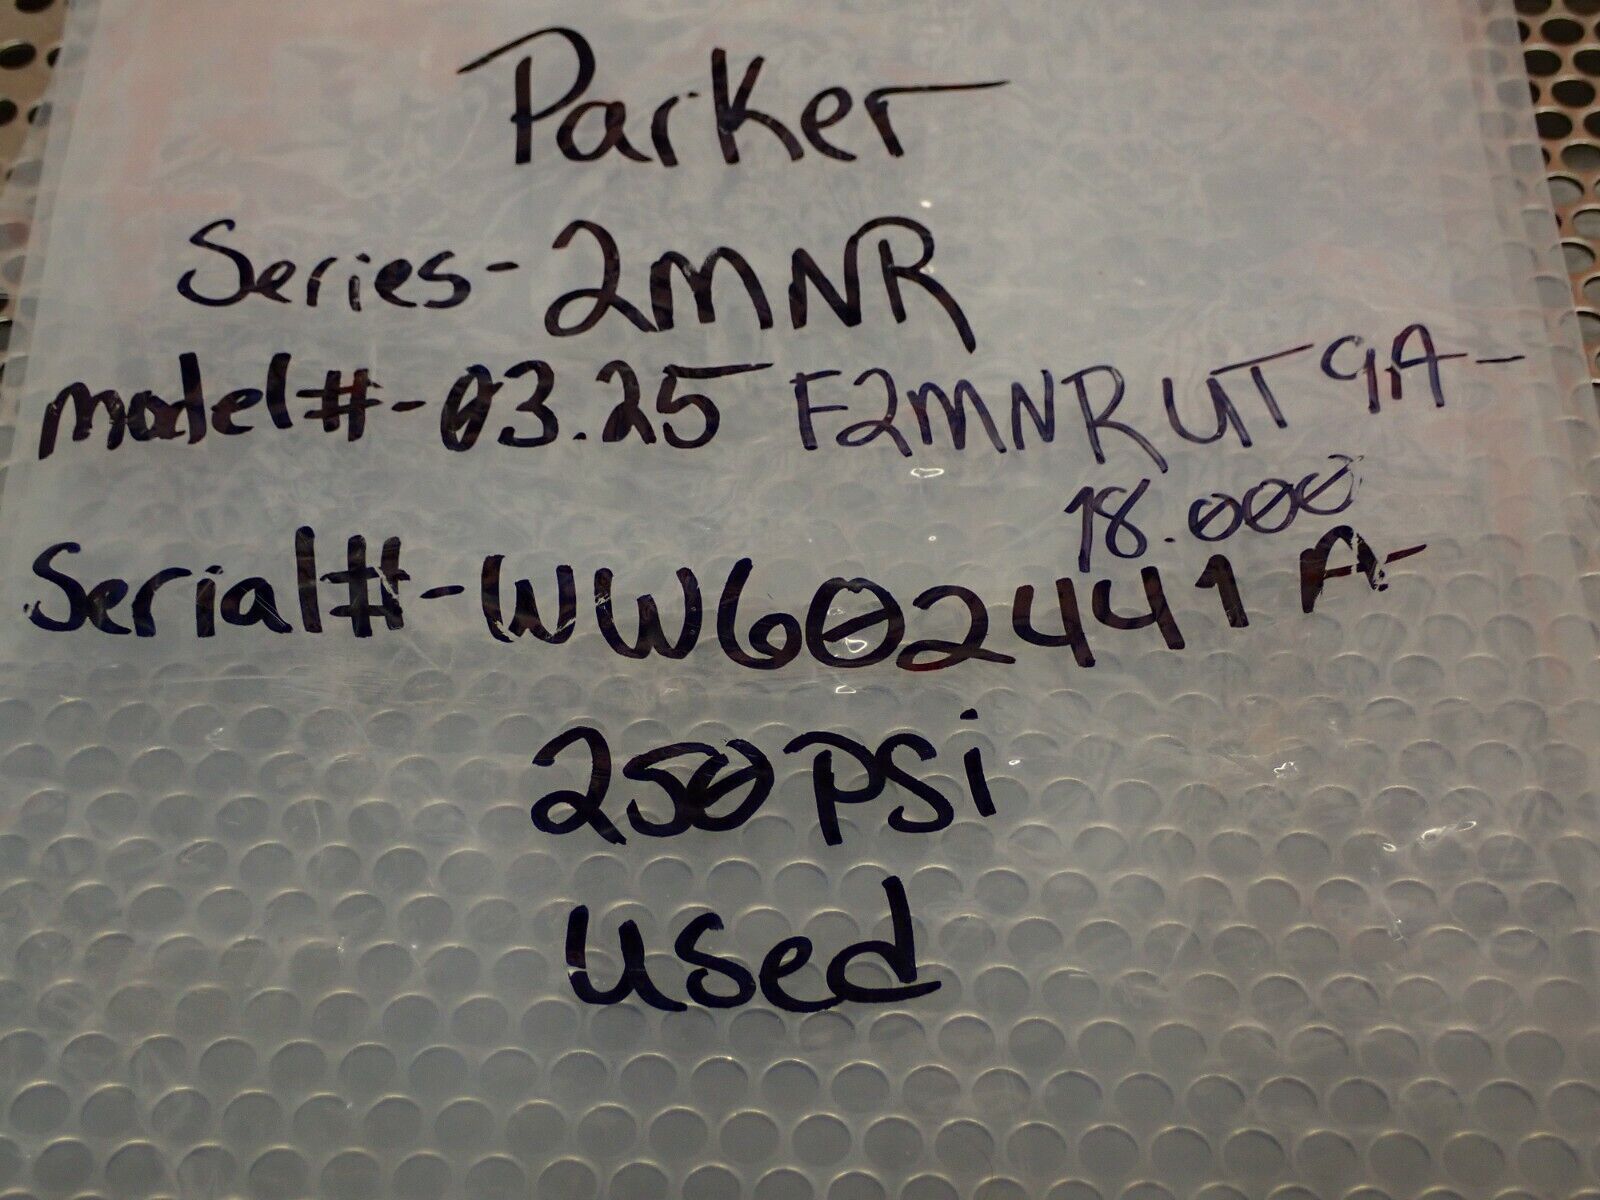 Parker
Series-2MNR
model#-03.25 F2MNRUT9A-
18.000
Serial#-WW602441A-
250PSi
used